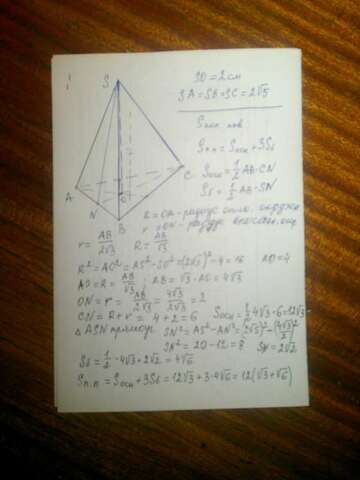 1
S
A
N
B
C
O
SO = 2 см
SA = SB = SC = 2√5
Sп.п. = Sосн + 3Sδ
Sосн = 1/2 AB·CN
Sδ = 1/2 AB·SN
R = OA - радиус
r = ON - радиус
r = AB/2√3 R = AB/√3
R² = AO² = AS² - SO² = (2√5)² - 4 = 16 AO = 4
AO = R = AB/√3; AB = √3·AO = 4√3
ON = r = AB/2√3 = 4√3/2√3 = 2
CN = R + r = 4 + 2 = 6 Sосн = 1/2 4√3·6 = 12√3
Δ ASN прямоуг. SN² = AS² - AN² = (2√5)² - (4√3/2)²
SN² = 20 - 12 = 8 SN = 2√2
Sδ = 1/2·4√3·2√2 = 4√6
Sп.п = Sосн + 3Sδ = 12√3 + 3·4√6 = 12(√3 + √6)